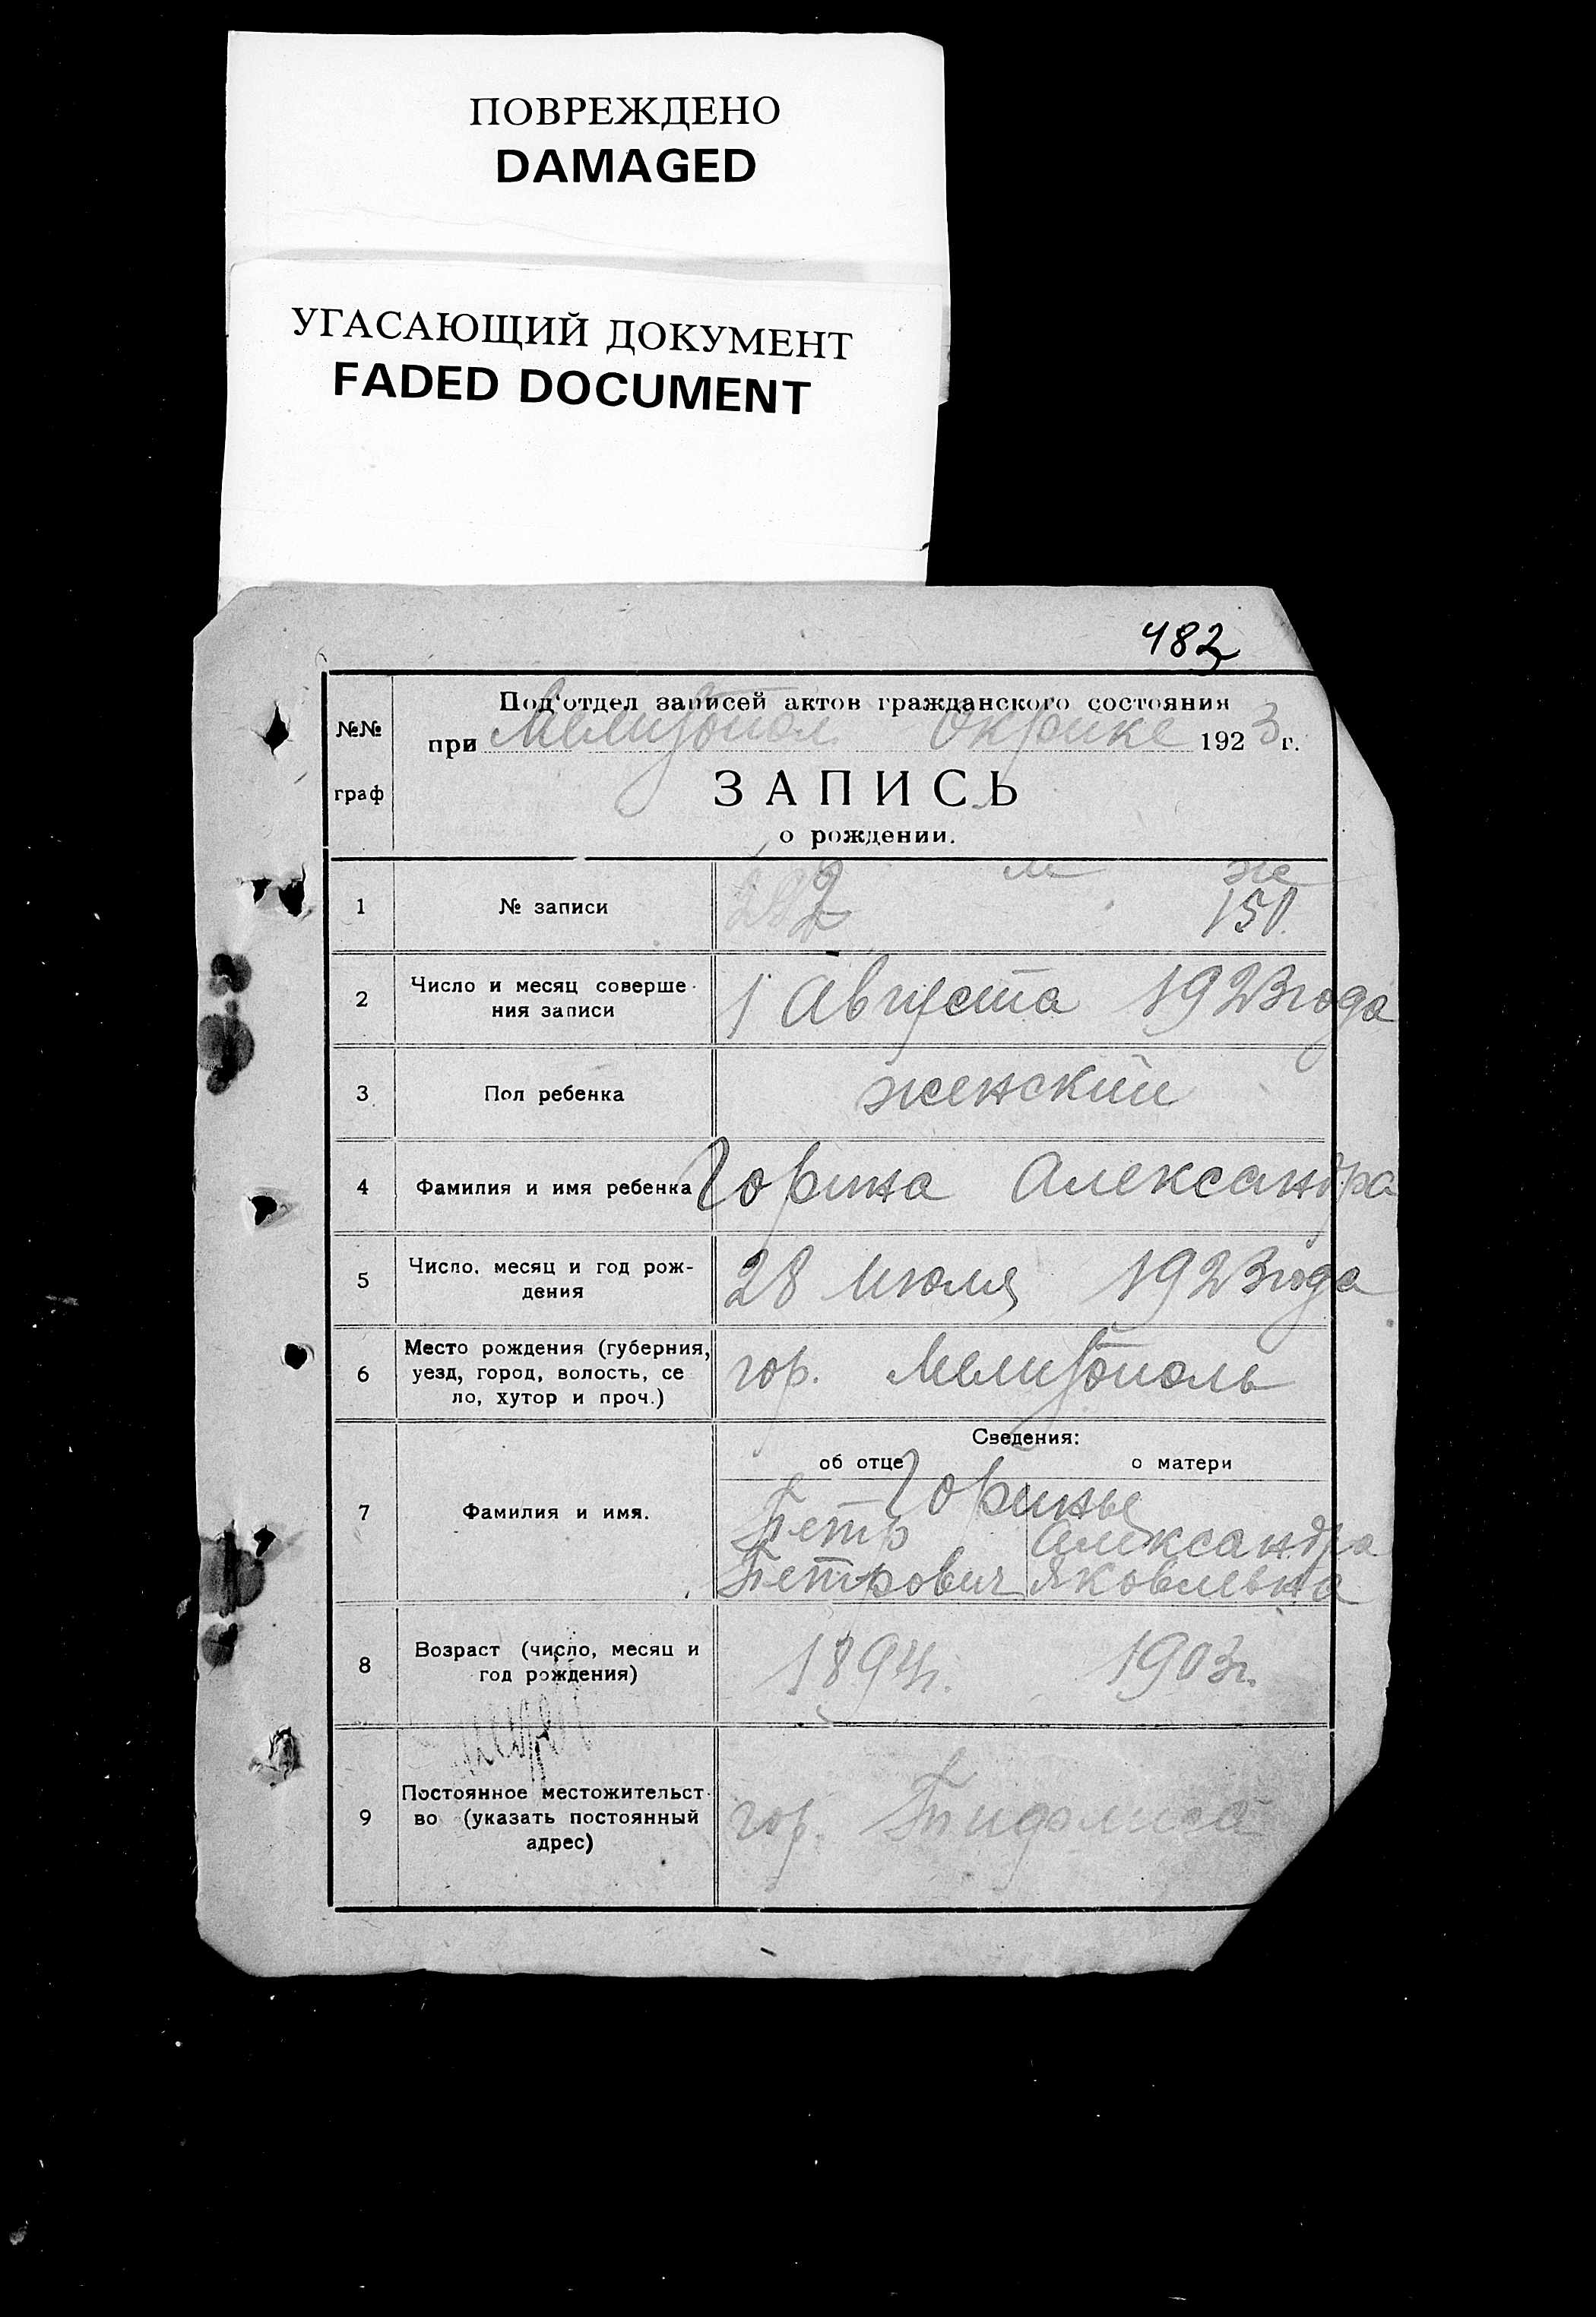 ПОВРЕЖДЕНО
DAMAGED
УГАСАЮЩИЙ ДОКУМЕНТ
FADED DOCUMENT
482
№№
граф
Под'отдел записей актов гражданского состояния
при Мелитопол Окрике 1923 г.
ЗАПИСЬ
о рождении.
м же
1 № записи 2 150
2 Число и месяц соверше-
ния записи
1 Августа 1923 года
3 Пол ребенка женский
4 Фамилия и имя ребенка Горина Александра
5 Число, месяц и год рож-
дения
28 Июля 1923 года
6 Место рождения (губерния,
уезд, город, волость, се
ло, хутор и проч.)
гор. Мелитополь
Сведения:
об отце о матери
7 Фамилия и имя.
Горины
Петр Александра
Петрович Яковлевна
8 Возраст (число, месяц и
год рождения)
1894г. 1903г.
9 Постоянное местожительст-
во (указать постоянный
адрес)
гор.